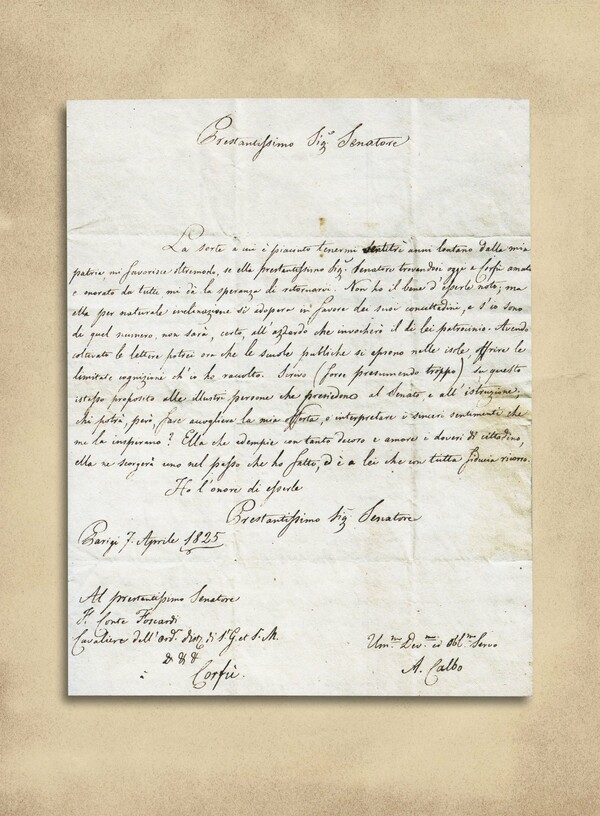 Prestantissimo Sig.r Senatore
La sorte a cui è piaciuto tenermi ventitrè anni lontano dalla mia
patria mi favorisce oltremodo, se ella prestantissimo Sig.r Senatore trovandosi oggi a Corfù amato
e onorato da tutti mi dà la speranza di ritornarvi. Non ho il bene d'esserle noto; ma
ella per naturale inclinazione si adopera in favore dei suoi concittadini, e s'io sono
di quel numero, non sarà, certo, all'azzardo che invocherò il di lei patrocinio. Avendo
coltivato le lettere potrei ora che le scuole publiche si aprono nelle isole, offrire le
limitate cognizioni ch'io ho raccolto. Scrivo (forse presumendo troppo) su questo
istesso proposito alle illustri persone che presiedono al Senato e all'istruzione;
chi potrà, però, fare accogliere la mia offerta, o interpretare i sinceri sentimenti che
me la inspirano? Ella che adempie con tanto decoro e amore i doveri di cittadino,
ella ne scorgerà uno nel passo che ho fatto, ed è a lei che con tutta fiducia ricorro.
Ho l'onore di esserle
Prestantissimo Sig.r Senatore
Parigi 7. Aprile 1825
Al prestantissimo Senatore
Conte Foscardi
Cavaliere dell'ord. dist. di S. G. et S. M.
& & &
à Corfù.
Um.mo Dev.mo ed obl.mo Servo
A. Calbo